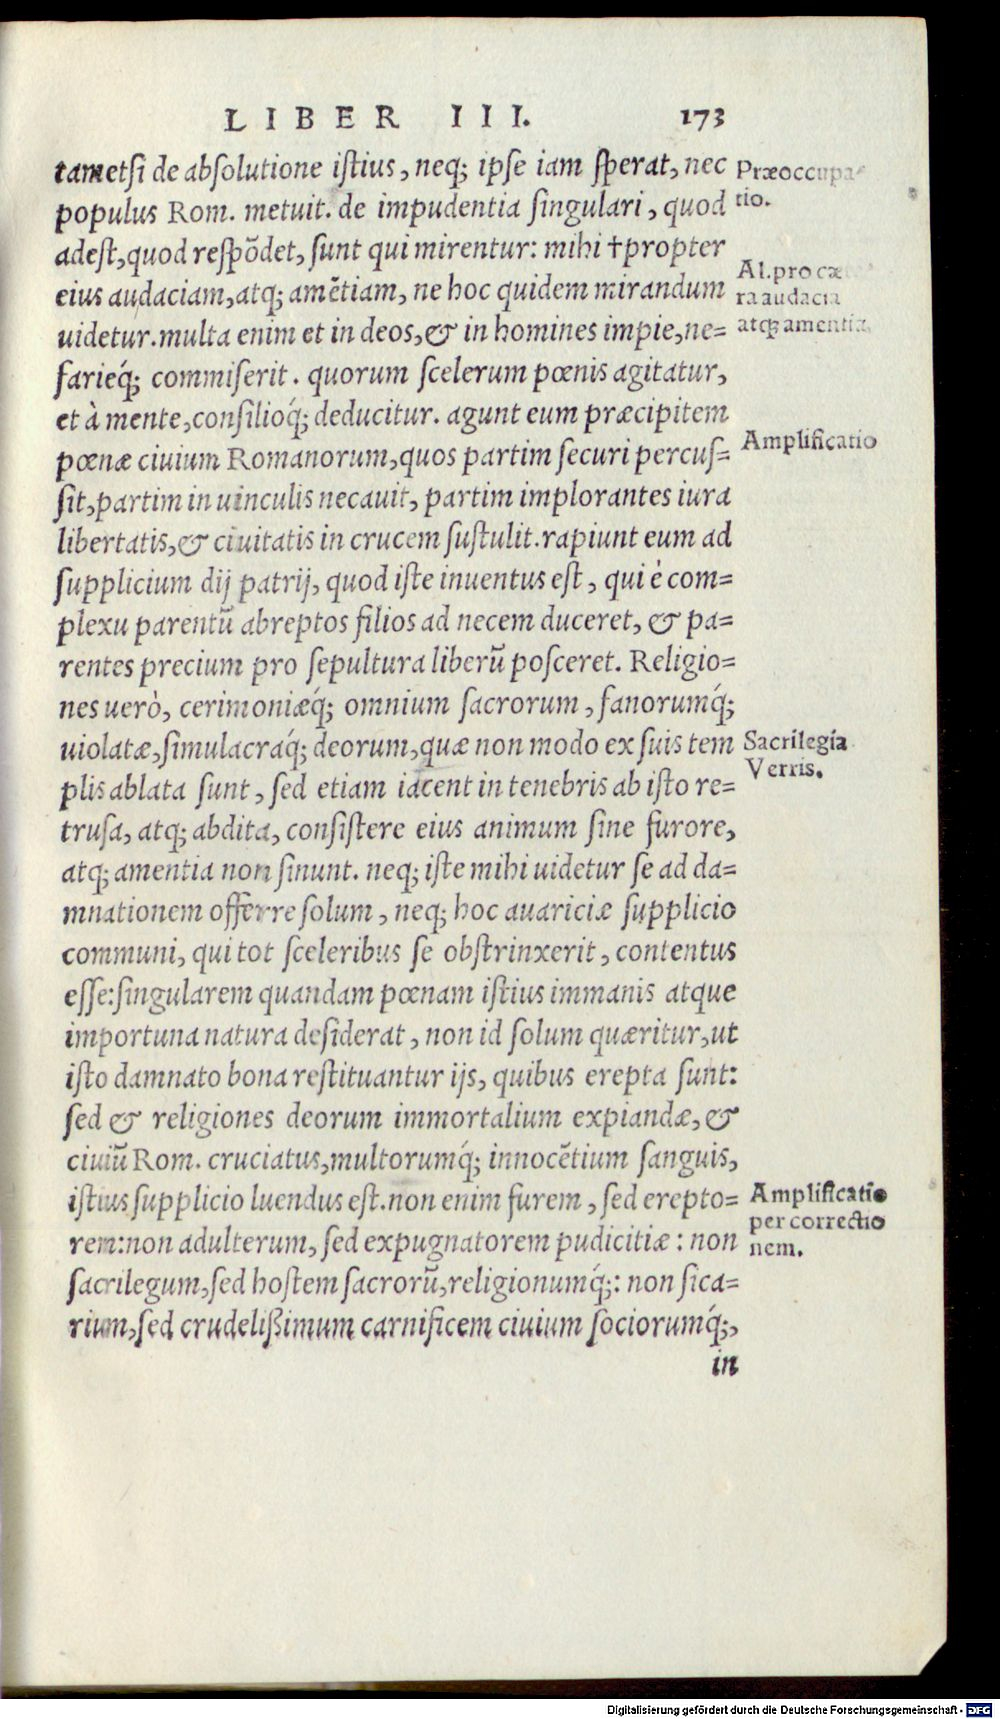 LIBER III. 173
tametsi de absolutione istius, neq; ipse iam sperat, nec
populus Rom. metuit. de impudentia singulari, quod
adest, quod respõdet, sunt qui mirentur: mihi †propter
eius audaciam, atq; amẽtiam, ne hoc quidem mirandum
uidetur. multa enim et in deos, & in homines impie, ne=
farieq́; commiserit. quorum scelerum pœnis agitatur,
et à mente, consilioq́; deducitur. agunt eum præcipitem
pœnæ ciuium Romanorum, quos partim securi percus=
sit, partim in uinculis necauit, partim implorantes iura
libertatis, & ciuitatis in crucem sustulit. rapiunt eum ad
supplicium dij patrij, quod iste inuentus est, qui è com=
plexu parentũ abreptos filios ad necem duceret, & pa=
rentes precium pro sepultura liberũ posceret. Religio=
nes uerò, cerimoniæq́; omnium sacrorum, fanorumq́;
uiolatæ, simulacraq́; deorum, quæ non modo ex suis tem
plis ablata sunt, sed etiam iacent in tenebris ab isto re=
trusa, atq; abdita, consistere eius animum sine furore,
atq; amentia non sinunt. neq; iste mihi uidetur se ad da=
mnationem offerre solum, neq; hoc auariciæ supplicio
communi, qui tot sceleribus se obstrinxerit, contentus
esse: singularem quandam pœnam istius immanis atque
importuna natura desiderat, non id solum quæritur, ut
isto damnato bona restituantur ijs, quibus erepta sunt:
sed & religiones deorum immortalium expiandæ, &
ciuiũ Rom. cruciatus, multorumq́; innocẽtium sanguis,
istius supplicio luendus est. non enim furem, sed erepto=
rem: non adulterum, sed expugnatorem pudicitiæ: non
sacrilegum, sed hostem sacrorũ, religionumq́;: non sica=
rium, sed crudelißimum carnificem ciuium sociorumq́;,
in
Præoccupa=
tio.
Al. pro
ra audacia
atq; amentia,
Amplificatio
Sacrilegia
Verris.
Amplificatio
per correctio
nem.
Digitalisierung gefördert durch die Deutsche Forschungsgemeinschaft - DFG